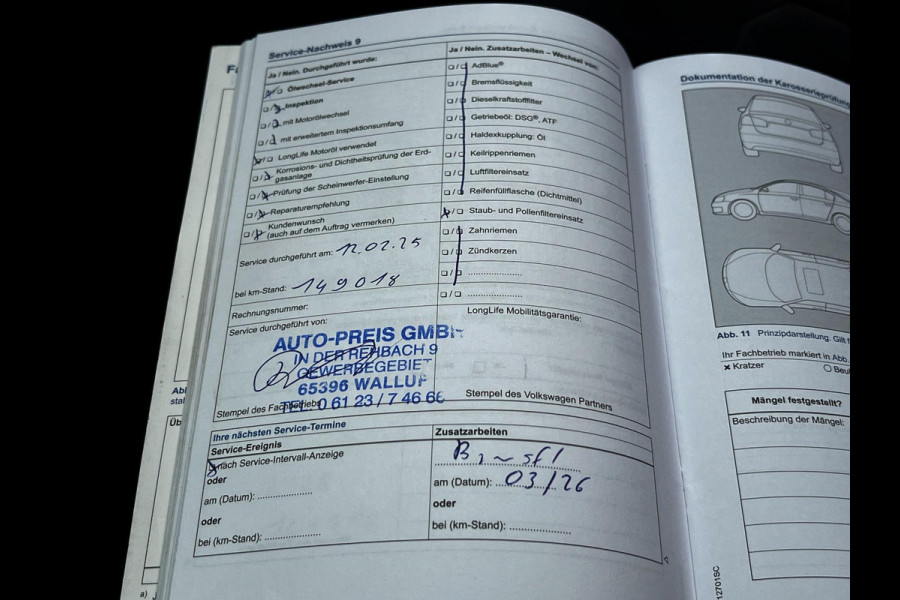 Service-Nachweis 9
Ja / Nein. Durchgeführt wurde:
Ölwechsel-Service
Inspektion
mit Motorölwechsel
mit erweitertem Inspektionsumfang
LongLife Motoröl verwendet
Korrosions- und Dichtheitsprüfung der Erd-
gasanlage
Prüfung der Scheinwerfer-Einstellung
Reparaturempfehlung
Kundenwunsch
(auch auf dem Auftrag vermerken)
Service durchgeführt am: 12.02.25
bei km-Stand: 149018
Rechnungsnummer:
Service durchgeführt von:
AUTO-PREIS GMBH
IN DER REHBACH 9
GEWERBEGEBIET
65396 WALLUF
TEL. 0 61 23 / 7 46 66
Stempel des Fachbetriebs
Ja / Nein. Zusatzarbeiten – Wechsel von:
AdBlue®
Bremsflüssigkeit
Dieselkraftstofffilter
Getriebeöl: DSG®, ATF
Haldexkupplung: Öl
Keilrippenriemen
Luftfiltereinsatz
Reifenfüllflasche (Dichtmittel)
Staub- und Pollenfiltereinsatz
Zahnriemen
Zündkerzen
LongLife Mobilitätsgarantie:
Stempel des Volkswagen Partners
Ihre nächsten Service-Termine
Service-Ereignis
nach Service-Intervall-Anzeige
oder
am (Datum):
oder
bei (km-Stand):
Zusatzarbeiten
am (Datum): 03/26
oder
bei (km-Stand):
Dokumentation der Karosserieprüfung
Abb. 11 Prinzipdarstellung. Gilt
Ihr Fachbetrieb markiert in Abb.
x Kratzer
Mängel festgestellt?
Beschreibung der Mängel:
12701SC
a)